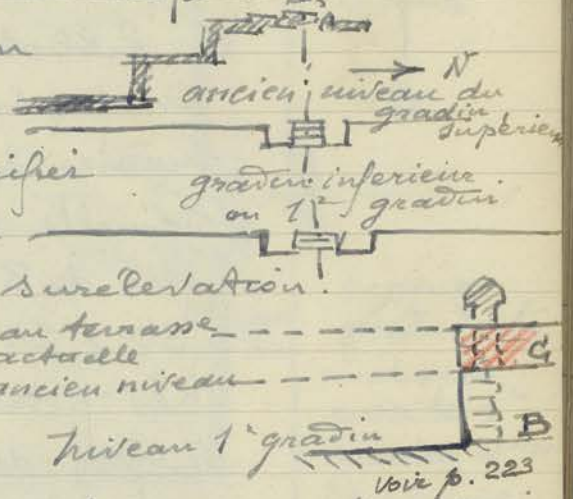 N
ancien niveau du
gradin
supérieur
gradin inferieur
ou 1r gradin
surélevation.
au terrasse
actuelle
G
ancien niveau
niveau 1r gradin
B
voir p. 223